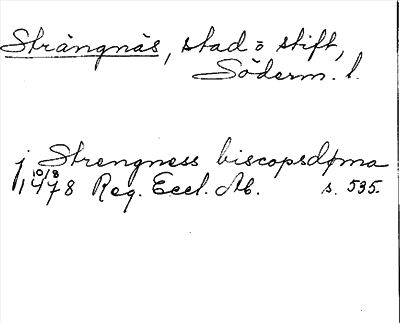 Strängnäs, stad o stift,
Söderm. l.
j Strengness biscopsdøma
10/3 1478 Reg. Eccl. Ab. s. 535.